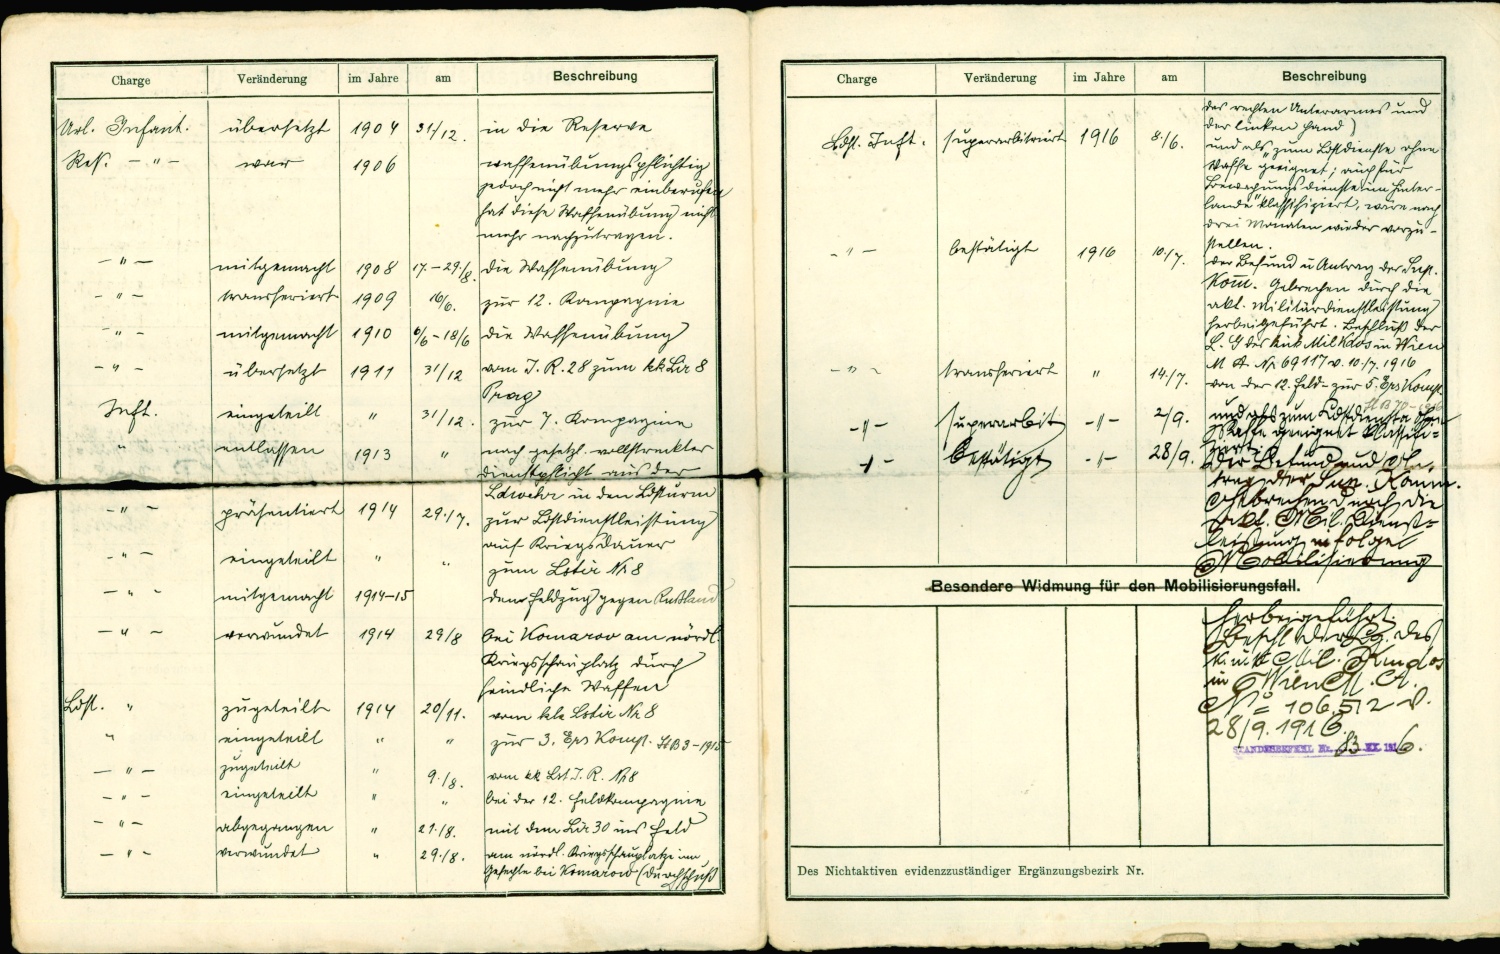 Charge Veränderung im Jahre am Beschreibung
Url. Infant. übersetzt 1904 31/12. in die Reserve
Res. — " — war 1906 waffenübungspflichtig
jedoch nicht mehr einberufen
hat diese Waffenübung nicht
mehr nachzutragen.
— " — mitgemacht 1908 17.–29./8. die Waffenübung
— " — transferiert 1909 16/6. zur 12. Kompagnie
— " — mitgemacht 1910 6/6–18/6 die Waffenübung
— " — übersetzt 1911 31/12 vom I. R. 28 zum kk Lir 8
Prag
Inft. eingeteilt " 31/12. zur 7. Kompagnie
" entlassen 1913 " nach gesetzl. vollstreckter
Dienstpflicht aus der
Ldwehr in den Ldsturm
— " — präsentiert 1914 29./7. zur Ldstdienstleistung
auf Kriegsdauer
— " — eingeteilt " " zum Lstir Nr 8
— " — mitgemacht 1914–15 den Feldzug gegen Rußland
— " — verwundet 1914 29/8 bei Komarow am nördl.
Kriegsschauplatz durch
feindliche Waffen
Ldst. " zugeteilt 1914 20/11. vom kk Lstir Nr 8
" eingeteilt " " zur 3. Ers Komp. StB 3–1915
— " — zugeteilt " 9./8. vom kk Lst I. R. Nr 8
— " — eingeteilt " " bei der 12. Feldkompagnie
— " — abgegangen " 21./8. mit dem Lir 30 ins Feld
— " — verwundet " 29./8. am nördl. Kriegsschauplatze im
Gefechte bei Komarow (Durchschuß
Charge Veränderung im Jahre am Beschreibung
des rechten Unterarmes und
der linken Hand)
Ldst. Inft. superarbitriert 1916 8./6. und als "zum Ldstdienste ohne
Waffe geeignet; auch für
Bewachungsdienste im Hinter-
lande" klassifiziert, wäre nach
drei Monaten wieder vorzu-
stellen.
— " — bestätigt 1916 10./7. der Befund u Antrag der Sup.
Kom. Gebrechen durch die
akt. Militärdienstleistung
herbeigeführt. Beschluß der
L. G des kuk Mil Kdos in Wien
M A. Nr 69117 v. 10./7. 1916
— " — transferiert " 14./7. von der 12. Feld- zur 5. Ers Komp.
StB 70–1916
— " — superarbit — " — 2/9. und als zum Ldstdienste ohne
Waffe geeignet klassifi-
ziert.
— " — bestätigt — " — 28/9. Der Befund und An-
trag der Sup. Komm.
Gebrechen durch die
akt. Mil. Dienst-
leistung infolge
Mobilisierung
Besondere Widmung für den Mobilisierungsfall.
herbeigeführt.
Beschl. der Lg. des
k. u. k Mil. Kmdos
in Wien M. A.
Nº = 106.512 v.
28/9. 1916.
STANDESBEFEHL Nr. 83 XX. 1916.
Des Nichtaktiven evidenzzuständiger Ergänzungsbezirk Nr.